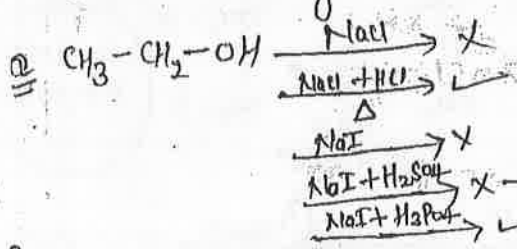 Q CH3-CH2-OH NaCl → X
NaCl + HCl → ✓
Δ
NaI → X
NaI + H2SO4 → X -
NaI + H3PO4 → ✓